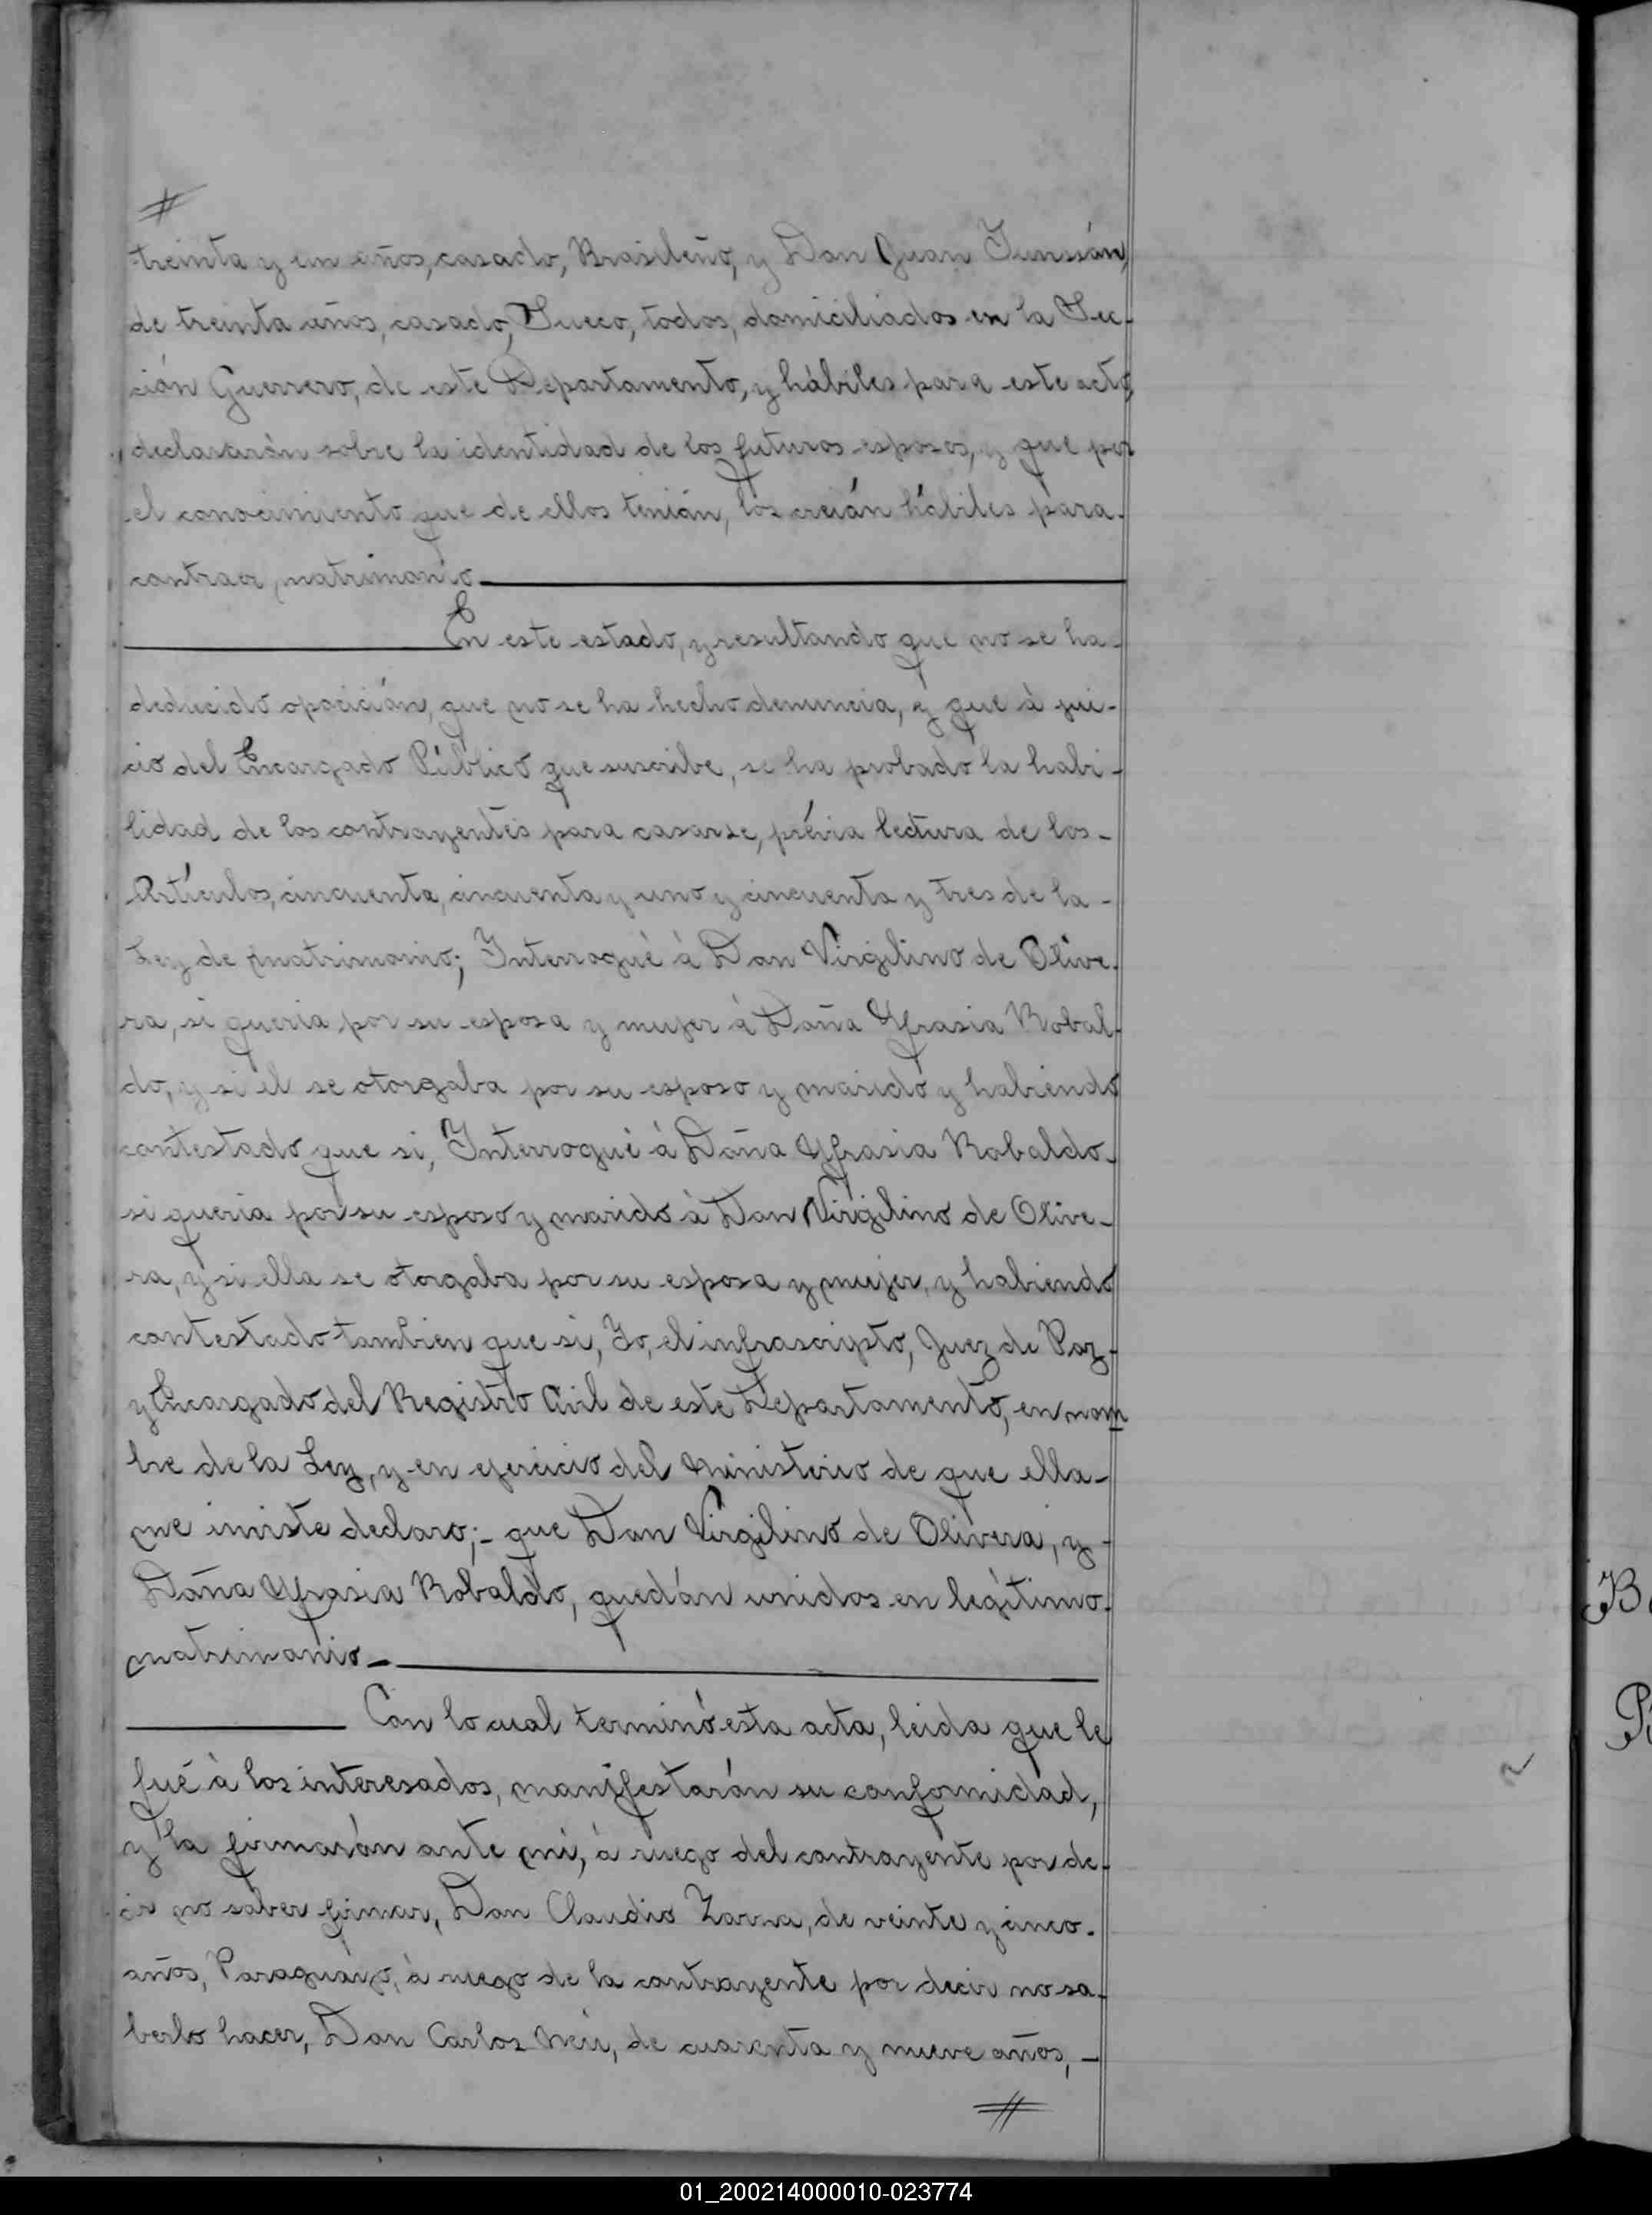 #
treinta y un años, casado, Brasileño, y Don Juan
de treinta años, casado, Sueco, todos, domiciliados en la Sec-
ción Guerrero, de este Departamento, y hábiles para este acto,
declararón sobre la identidad de los futuros esposos, y que por
el conocimiento que de ellos tenián, los creián hábiles para-
contraer, matrimonio
En este estado, y resultando que no se ha-
deducido oposición, que no se ha hecho denuncia, y que á jui-
cio del Encargado Público que suscribe, se ha probado la habi-
lidad de los contrayentes para casarse, prévia lectura de los-
Artículos, cincuenta, cincuenta y uno y cincuenta y tres de la-
Ley de matrimonio; Interrogué á Don Virgilino de Olive-
ra, si queria por su esposa y mujer á Doña Yfrasia Robal-
do, y si él se otorgaba por su esposo y marido y habiendo
contestado que si, Interrogué á Doña Yfrasia Robaldo-
si queria por su esposo y marido á Don Virgilino de Olive-
ra, y si ella se otorgaba por su esposa y mujer, y habiendo
contestado tambien que si, Yo, el infrascripto, Juez de Paz-
y Encargado del Registro Civil de este Departamento, en nom
bre de la Ley, y en ejercicio del Ministerio de que ella-
me inviste declaro;- que Don Virgilino de Olivera, y-
Doña Yfrasia Robaldo, quedán unidos en legítimo-
matrimonio-
Con lo cual terminó esta acta, leida que le
fué á los interesados, manifestarón su conformidad,
y la firmarón ante mi, á ruego del contrayente por de-
cir no saber firmar, Don Claudio de veinte y cinco-
años, Paraguayo, á ruego de la contrayente por decir no sa-
berlo hacer, Don Carlos de cuarenta y nueve años,-
#
01_200214000010-023774